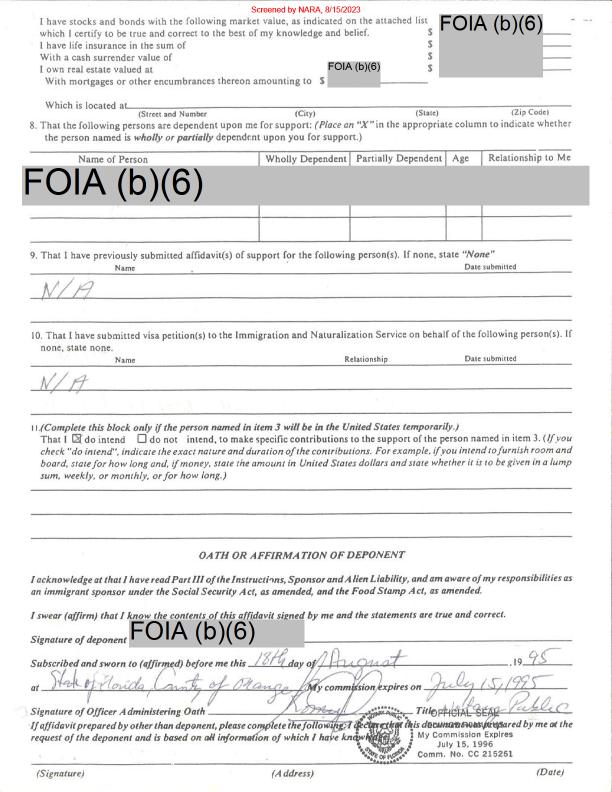 Screened by NARA, 8/15/2023
I have stocks and bonds with the following market value, as indicated on the attached list
which I certify to be true and correct to the best of my knowledge and belief. $ FOIA (b)(6)
I have life insurance in the sum of $
With a cash surrender value of $
I own real estate valued at $
With mortgages or other encumbrances thereon amounting to $ FOIA (b)(6)
Which is located at
(Street and Number) (City) (State) (Zip Code)
8. That the following persons are dependent upon me for support: (Place an "X" in the appropriate column to indicate whether
the person named is wholly or partially dependent upon you for support.)
Name of Person Wholly Dependent Partially Dependent Age Relationship to Me
FOIA (b)(6)
9. That I have previously submitted affidavit(s) of support for the following person(s). If none, state "None"
Name Date submitted
N/A
10. That I have submitted visa petition(s) to the Immigration and Naturalization Service on behalf of the following person(s). If
none, state none.
Name Relationship Date submitted
N/A
11.(Complete this block only if the person named in item 3 will be in the United States temporarily.)
That I ☒ do intend ☐ do not intend, to make specific contributions to the support of the person named in item 3. (If you
check "do intend", indicate the exact nature and duration of the contributions. For example, if you intend to furnish room and
board, state for how long and, if money, state the amount in United States dollars and state whether it is to be given in a lump
sum, weekly, or monthly, or for how long.)
OATH OR AFFIRMATION OF DEPONENT
I acknowledge at that I have read Part III of the Instructions, Sponsor and Alien Liability, and am aware of my responsibilities as
an immigrant sponsor under the Social Security Act, as amended, and the Food Stamp Act, as amended.
I swear (affirm) that I know the contents of this affidavit signed by me and the statements are true and correct.
Signature of deponent FOIA (b)(6)
Subscribed and sworn to (affirmed) before me this 18th day of August 19 95
at State of Florida, County of Orange My commission expires on July 15, 1995
Signature of Officer Administering Oath Title Notary Public
OFFICIAL SEAL
If affidavit prepared by other than deponent, please complete the following: I declare that this document was prepared by me at the
request of the deponent and is based on all information of which I have knowledge.
My Commission Expires
July 15, 1996
Comm. No. CC 215261
NOTARY PUBLIC
STATE OF FLORIDA
(Signature) (Address) (Date)